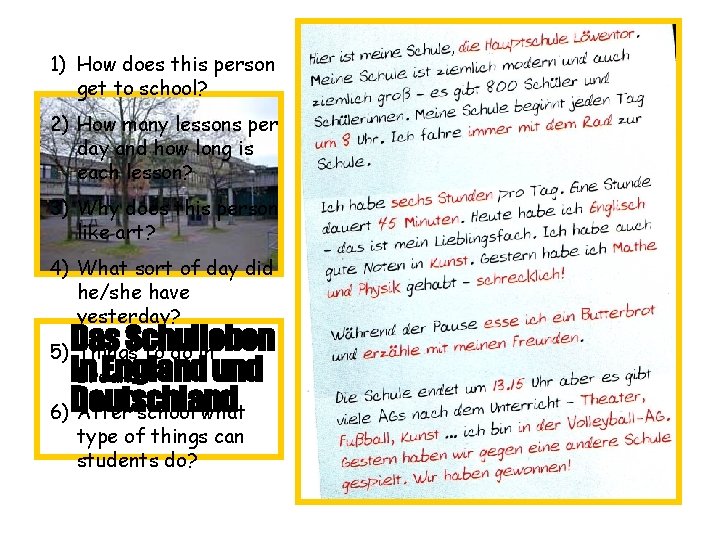 1) How does this person
get to school?
2) How many lessons per
day and how long is
each lesson?
3) Why does this person
like art?
4) What sort of day did
he/she have
yesterday?
5) Things to do in
6) After school what
type of things can
students do?
Das Schulleben
in England und
Deutschland
Hier ist meine Schule, die Hauptschule Löwentor.
Meine Schule ist ziemlich modern und auch
ziemlich groß – es gibt 800 Schüler und
Schülerinnen. Meine Schule beginnt jeden Tag
um 8 Uhr. Ich fahre immer mit dem Rad zur
Schule.
Ich habe sechs Stunden pro Tag. Eine Stunde
dauert 45 Minuten. Heute habe ich Englisch
– das ist mein Lieblingsfach. Ich habe auch
gute Noten in Kunst. Gestern habe ich Mathe
und Physik gehabt – schrecklich!
Während der Pause esse ich ein Butterbrot
und erzähle mit meinen Freunden.
Die Schule endet um 13.15 Uhr aber es gibt
viele AGs nach dem Unterricht – Theater,
Fußball, Kunst ... ich bin in der Volleyball-AG.
Gestern haben wir gegen eine andere Schule
gespielt. Wir haben gewonnen!